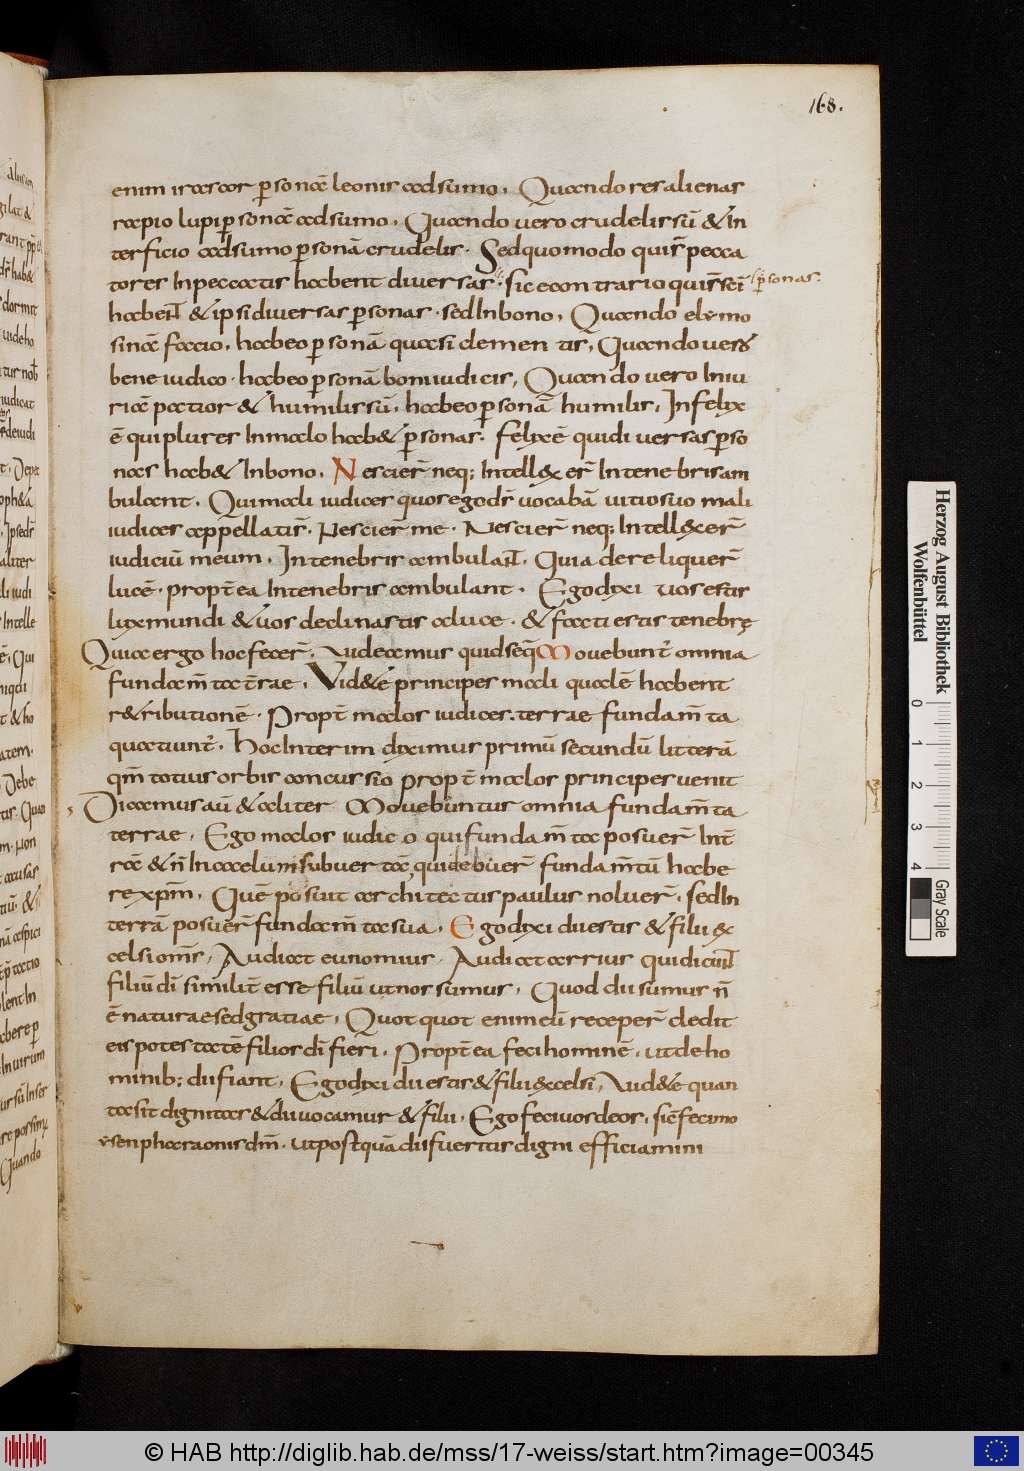 168.
enim irascor psonā leonis adsumo. Quando res alienas
rapio lupi psonā adsumo. Quando vero crudelis sū & in
terficio adsumo psonā crudelis. Sed quomodo quis̄ pecca
tores in peccatis habent diversas. sic econtrario qui sc̄i psonas.
haben̄t & ipsi diversas psonas. sed in bono. Quando elymo
sinā facio. habeo psonā quasi clementis. Quando vero
bene iudico. habeo psonā boni iudicis. Quando vero iniu
riā patior & humilis sū. habeo psonā humilis. Infelix
ē qui plures in malo hab& psonas. felix ē qui diversas pso
nas hab& in bono. Nescier̄ neq; intellexer̄ in tenebris am
bulant. Qui mali iudices quos ego dr̄ vocabā vitio suo mali
iudices appellatis̄. Nescier̄ me. Nescier̄ neq; intellexer̄
iudiciū meum. In tenebris ambulan̄t. Quia dereliquer̄
lucē. propt̄ea in tenebris ambulant. Ego dixi vos estis
lux mundi & vos declinastis a luce. & facti estis tenebrę
Quia ergo hoc fecer̄. videamus quid seq̄ Movebunt̄ omnia
fundam̄ta t̄rae. Vid&e principes mali qualē habent
r&ributionē. Propt̄ malos iudices. terrae fundam̄ta
quatiunt̄. Hoc interim diximus primū secundū litterā
qm̄ totius orbis concursio propt̄ malos principes venit
Dicamus aū & aliter Movebuntur omnia fundam̄ta
terrae. Ego malos iudico qui fundam̄ta posuer̄ int̄
rā & n̄ in caelum subver tā, qui debuer̄ fundam̄tū habe
re xpm̄. Quē posuit architectus paulus noluer̄. sed in
terrā posuer̄ fundam̄ta sua. Ego dixi dii estis & filii ex
celsi om̄s. Audiat eunomius. Audiat arrius qui dicun̄t
filiū di similit̄ esse filiū ut nos sumus. Quod dii sumus n̄
ē naturae sed gratiae. Quotquot enim eū receper̄ dedit
eis potestatē filios di fieri. Propt̄ea feci hominē. ut de ho
minib; dii fiant. Ego dixi dii estis & filii excelsi. Vid&e quan
ta sit dignitas & dii vocamur & filii. Ego feci vos deos. sic̄ feci mo
ysen pharaonis dm̄. ut postquā dii fueritis digni efficiamini
Herzog August Bibliothek
Wolfenbüttel
0 1 2 3 4
Gray Scale
© HAB http://diglib.hab.de/mss/17-weiss/start.htm?image=00345